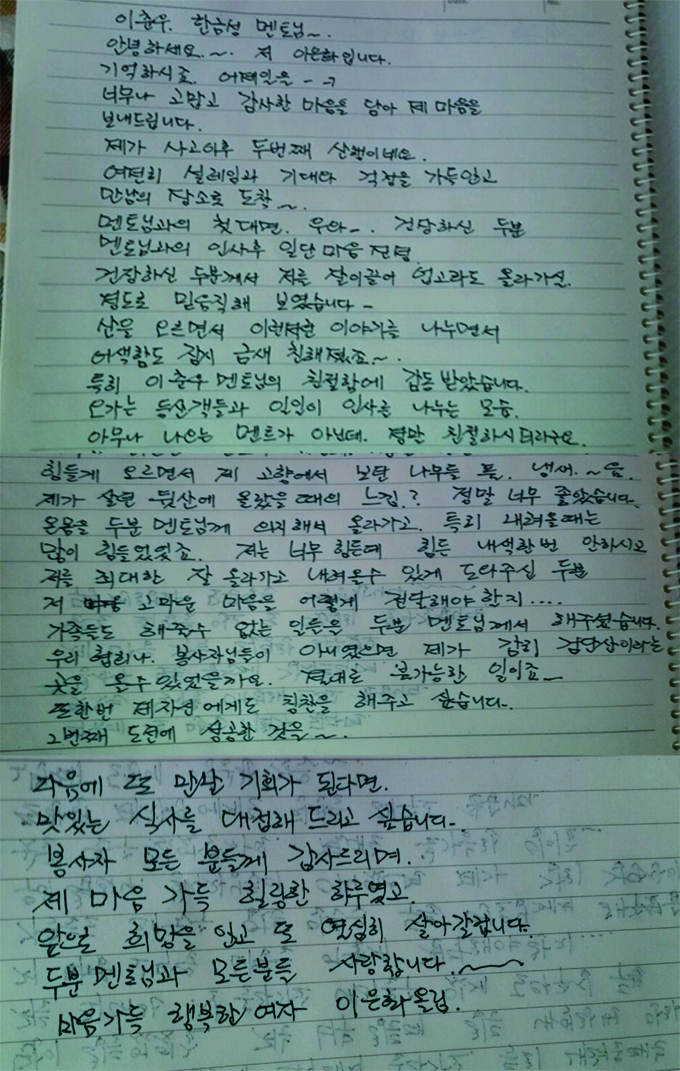 이춘우. 한금성 멘토님~.
안녕하세요.~. 저 이은화입니다.
기억하시죠. 어제일을 --
너무나 고맙고 감사한 마음을 담아 제 마음을
보내드립니다.
제가 사고이후 두번째 산행이네요.
여전히 설레임과 기대와 걱정을 가득안고
만남의 장소로 도착~.
멘토님과의 첫 대면. 우와~. 건장하신 두분
멘토님과의 인사후 일단 마음 진정.
건장하신 두분께서 저를 잘이끌어 업고라도 올라가실.
정도로 믿음직해 보였습니다-
산을 오르면서 이런저런 이야기를 나누면서
어색함도 잠시 금새 친해졌죠~.
특히 이춘우멘토님의 친절함에 감동받았습니다.
오가는 등산객들과 일일이 인사를 나누는 모습.
아무나 나오는 멘트가 아닌데. 정말 친절하시더라구요.
힘들게 오르면서 제 고향에서 보던 나무들 풀. 냄새.~음.
제가 살던 뒷산에 올랐을때의 느낌? 정말 너무 좋았습니다.
온몸을 두분멘토님께 의지해서 올라가고. 특히 내려올때는
많이 힘들었었죠. 저는 너무힘든데 힘든 내색한번 안하시고
저를 최대한 잘 올라가고 내려올수 있게 도와주신 두분
저 고마운 마음을 어떻게 전달해야 할지....
가족들도 해줄수 없는 일들을 두분 멘토님께서 해주셨습니다.
우리 봉사자님들이 아니였으면 제가 감히 검단산이라는
곳을 올수있었을까요. 절대로 불가능한 일이죠~
또한번 제자신에게도 칭찬을 해주고 싶습니다.
2번째 도전에 성공한 것을~.
다음에 또 만날 기회가 된다면.
맛있는 식사를 대접해 드리고 싶습니다.
봉사자 모든 분들께 감사드리며.
제 마음 가득 힐링한 하루였고.
앞으로 희망을 안고 또 열심히 살아갈겁니다.
두분멘토님과 모든분들 사랑합니다.~
마음가득 행복한여자 이은화올림.